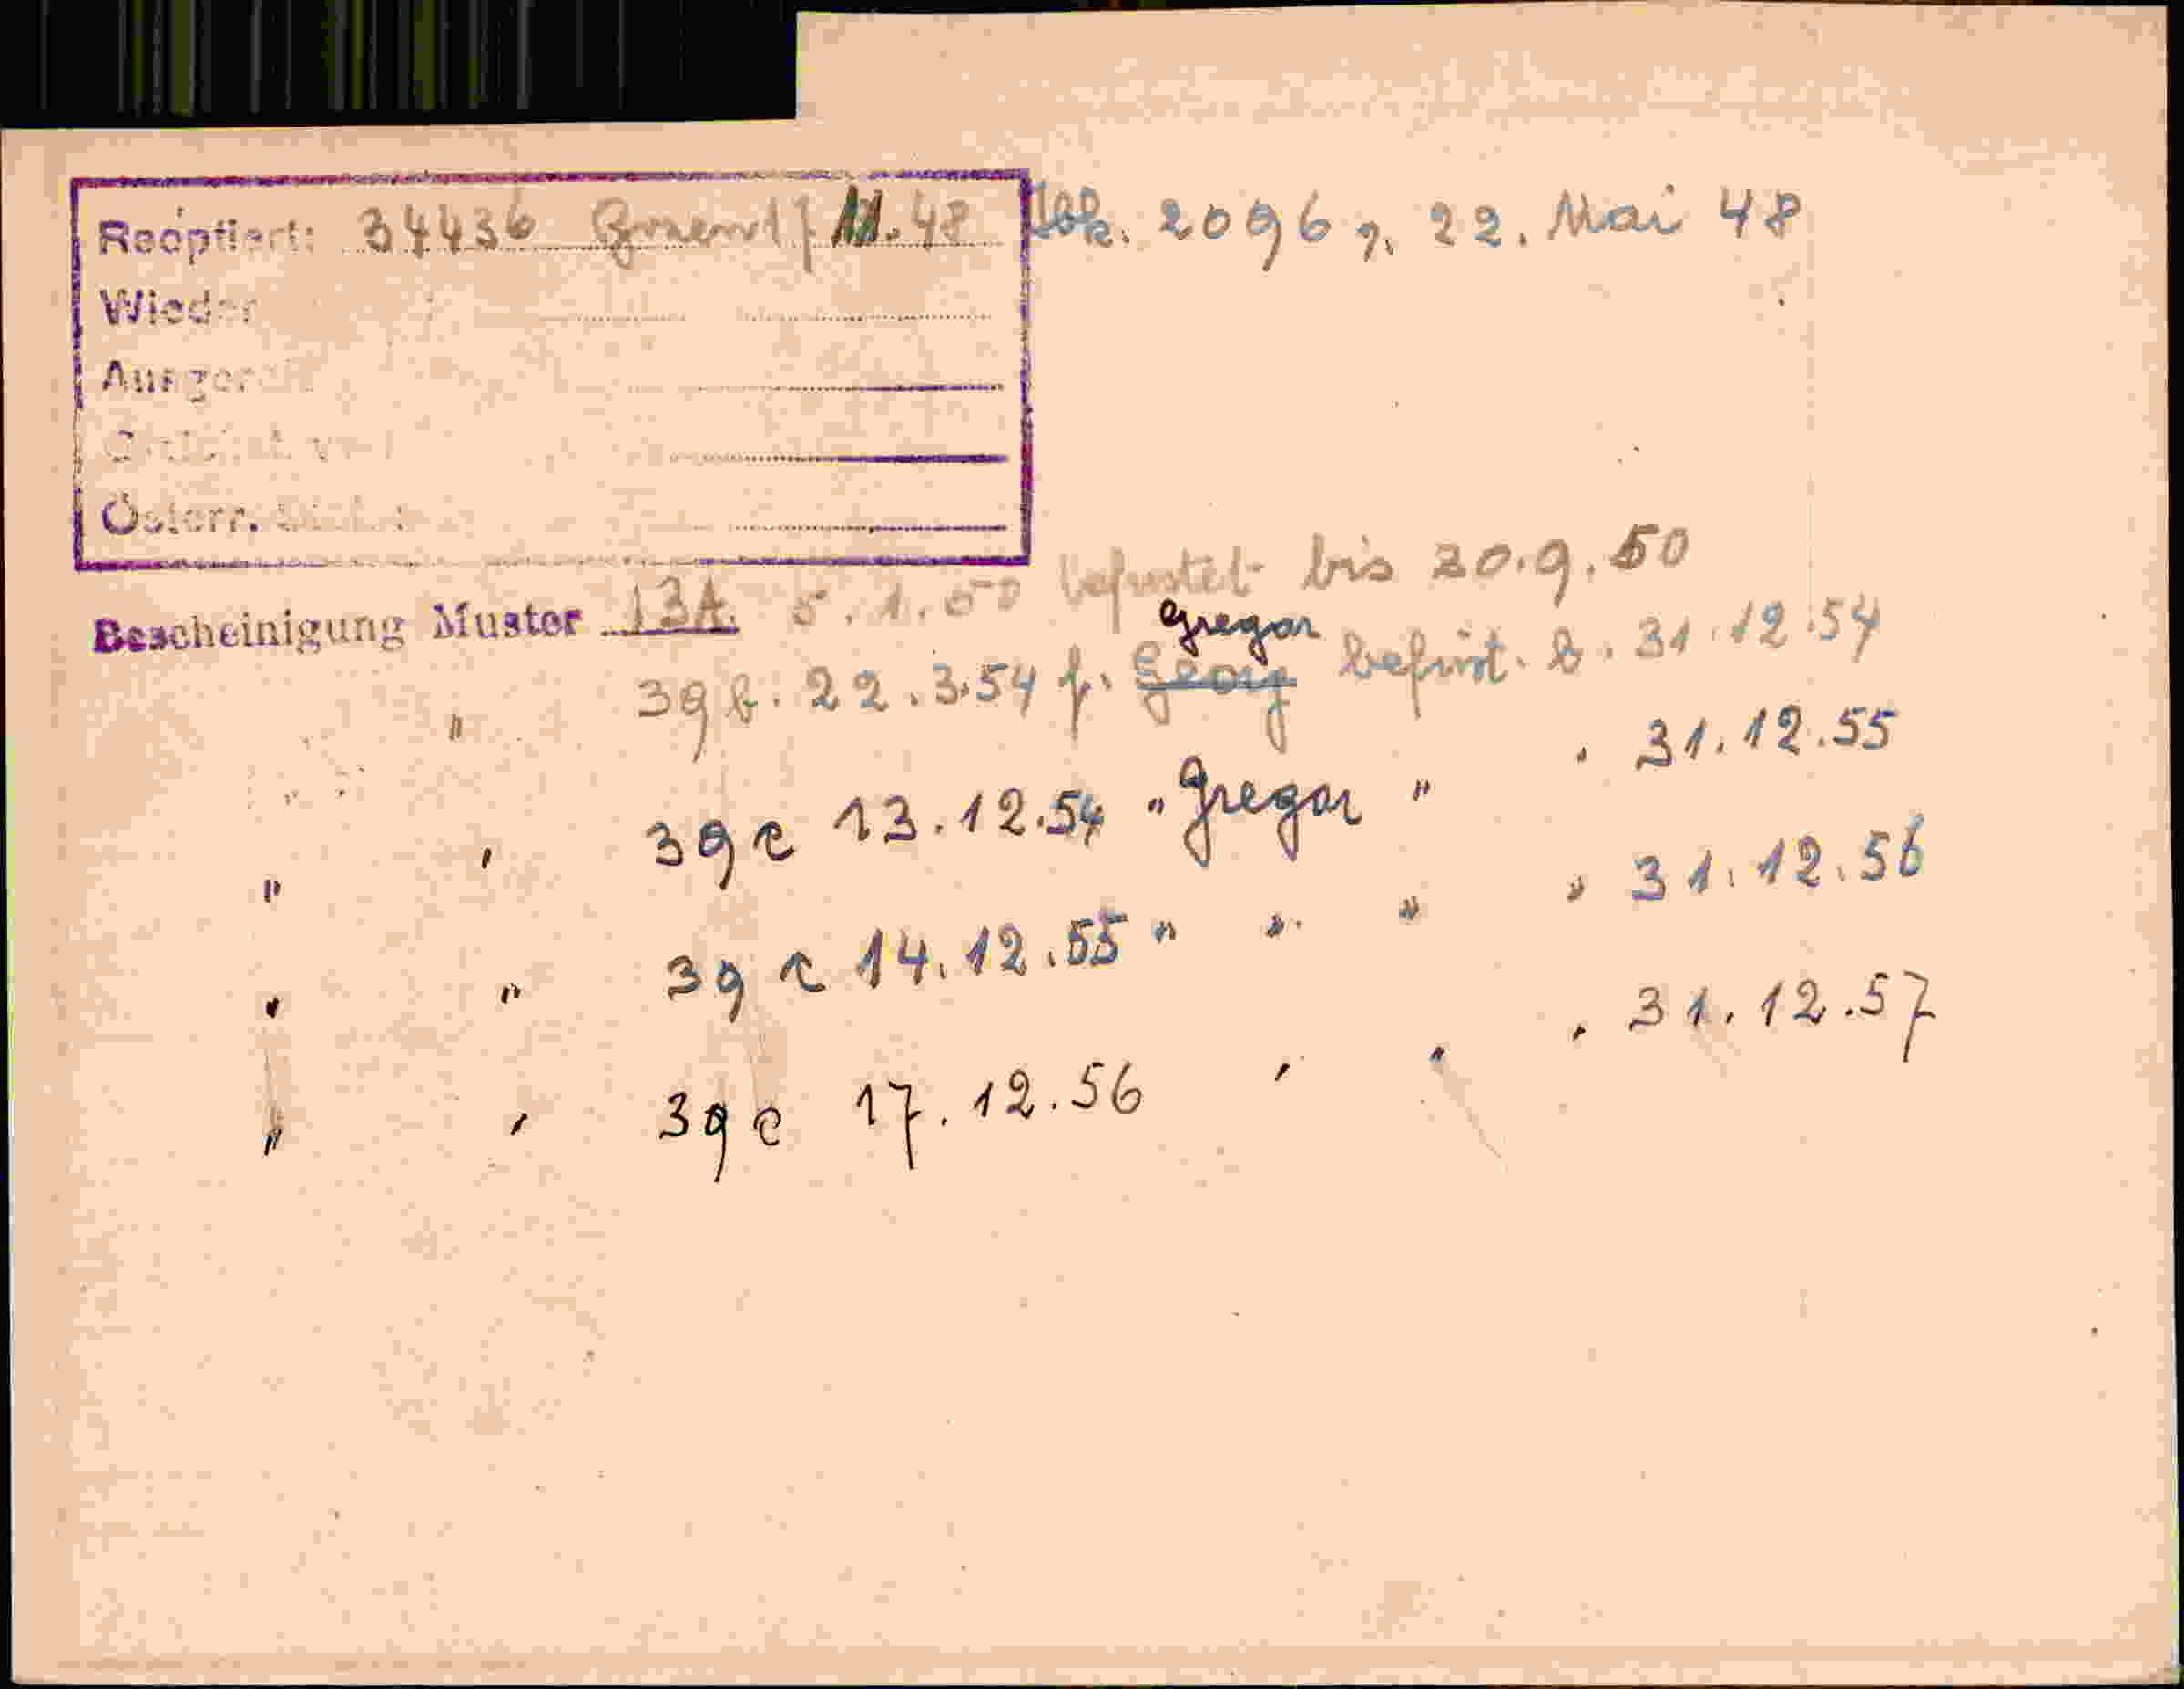 Reoptiert: 34436 11.48 2096 v. 22. Mai 48
Wieder
Ausger
Österr.
Bescheinigung Muster 13A 5.1.50 befristet bis 20.9.50
Gregor
" 39 b. 22.3.54 f. Georg befrist. b. 31.12.54
" " 39 c 13.12.54 " Gregor " " 31.12.55
" " 39 c 14.12.55 " " " " 31.12.56
" " 39 c 17.12.56 " " " 31.12.57